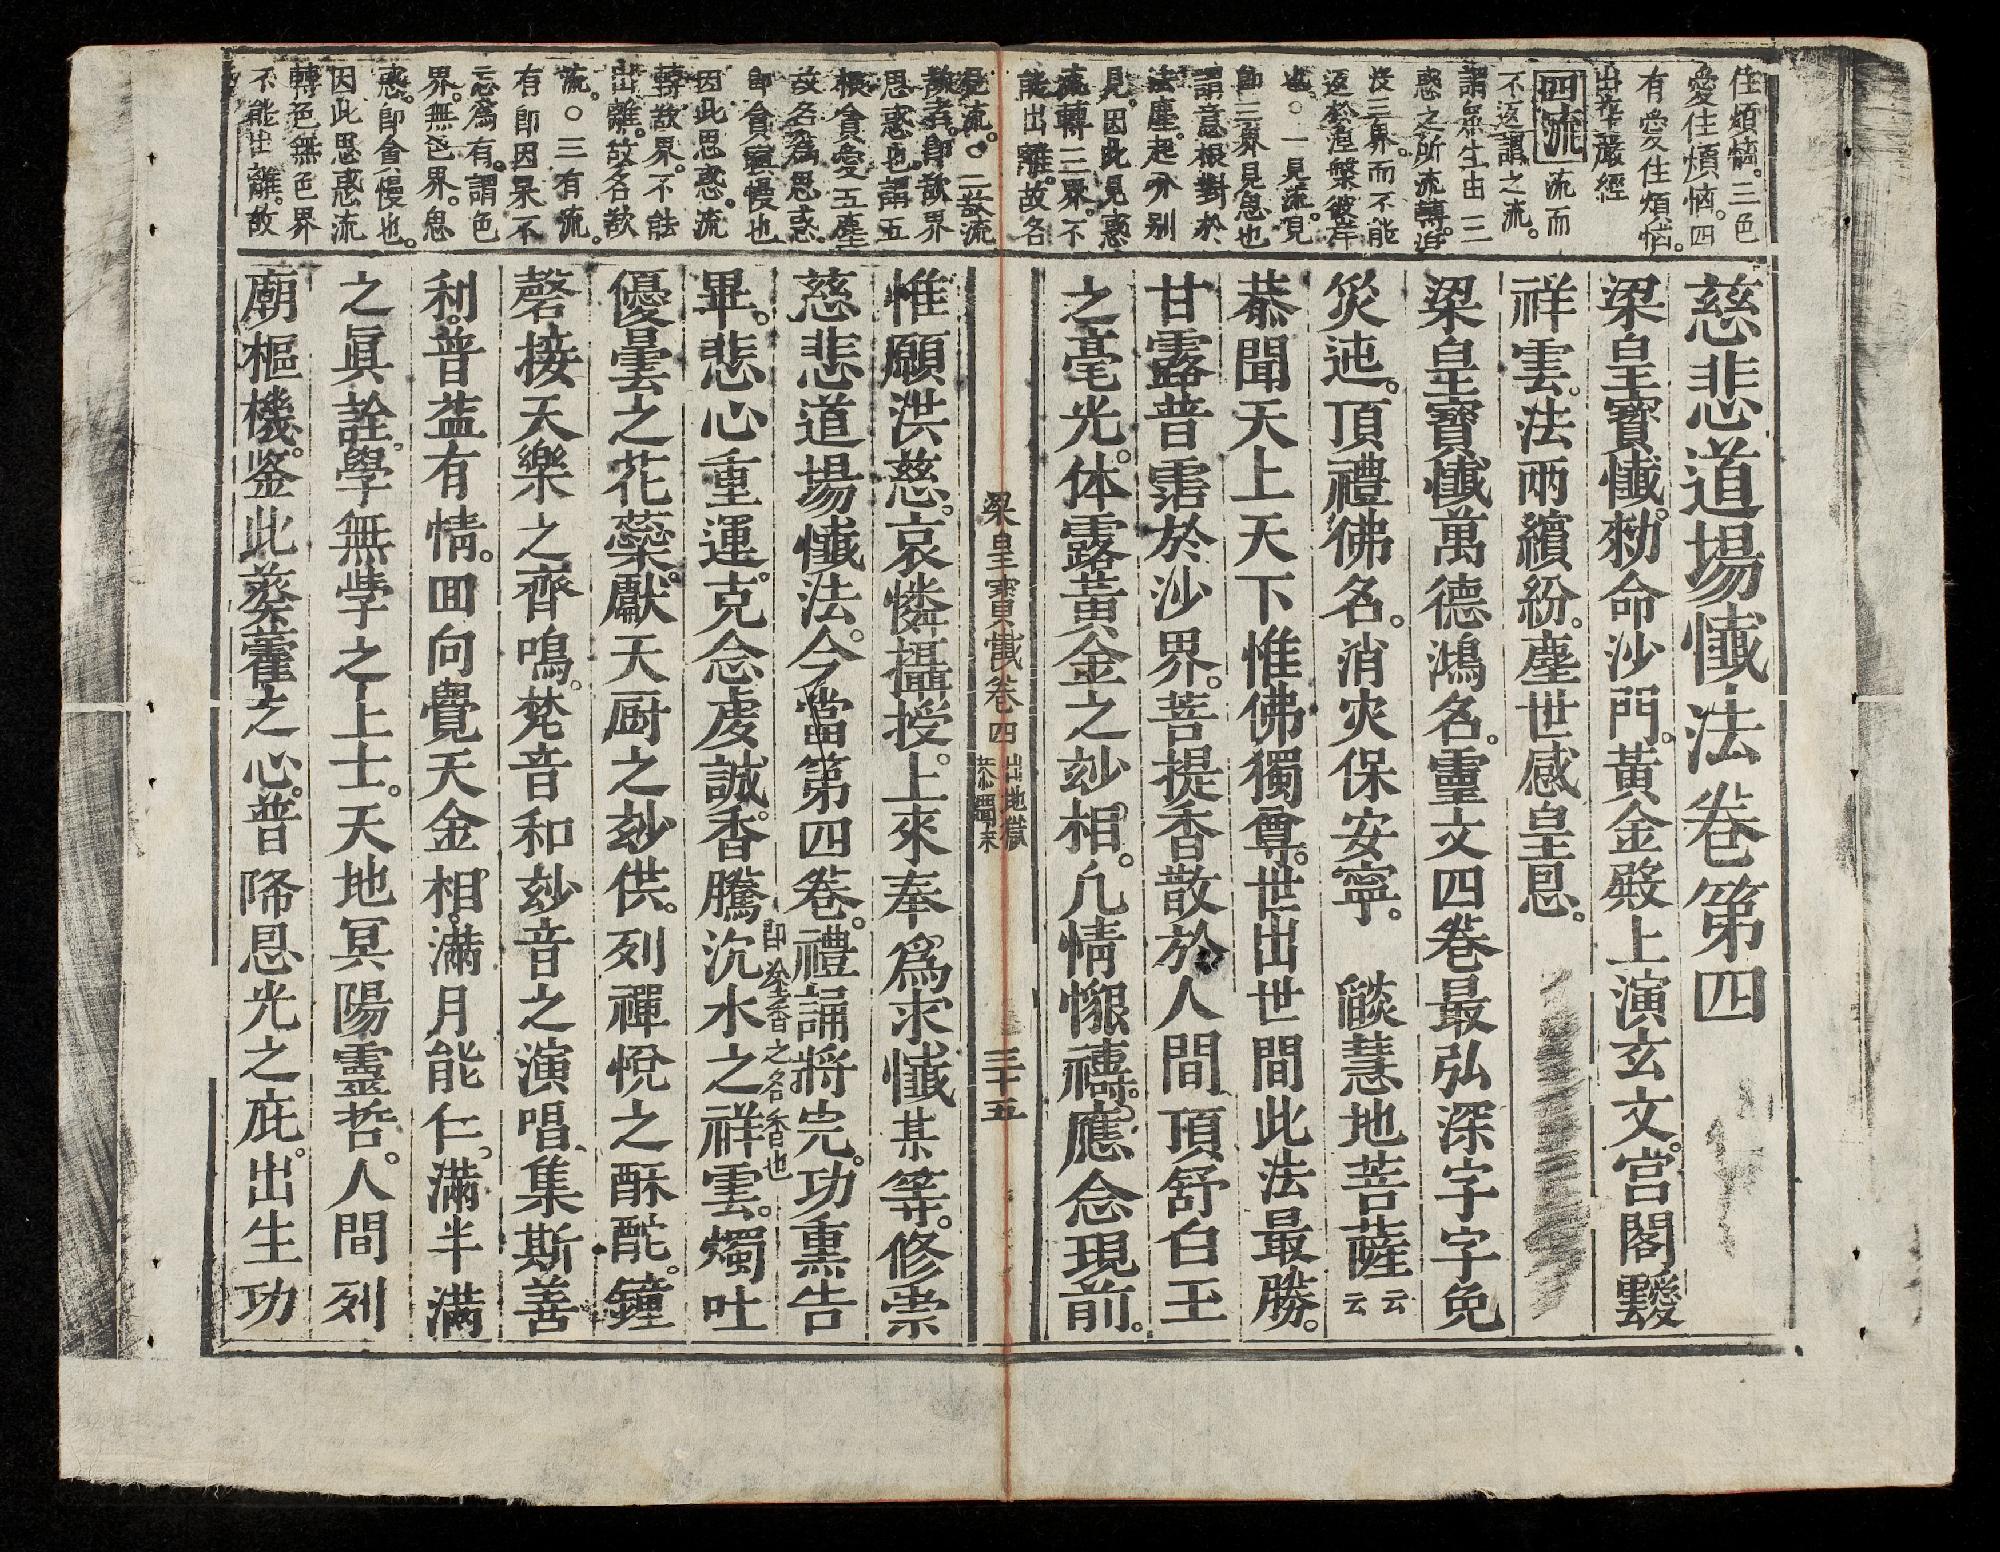 住煩惱。三色
愛住煩惱。四
有愛住煩惱。
出華嚴經
四流 流而
不返謂之流。
謂無生由三
惑之所流轉。
沒三界而不能
返於涅槃彼岸
也。○一見流。見
即三界見惑也
謂意根對於
法塵。起分別
見。因此見惑
流轉三界。不
能出離。故名
見流。○二欲流
欲者。即欲界
思惑也。謂五
根貪愛五塵
故名為思惑。
即貪瞋慢也
因此思惑。流
轉欲界。不能
出離。故名欲
流。○三有流。
有即因果不
忘為有。謂色
界。無色界。思
惑。即貪慢也。
因此思惑流
轉色無色界
不能出離。故
慈悲道場懺法卷第四
梁皇寶懺。勑命沙門。黃金殿上演玄文。宫閣靉
祥雲。法雨繽紛。塵世感皇恩。
梁皇寶懺萬德鴻名。靈文四卷最弘深字字免
災迍。頂禮佛名。消灾保安寧。 燄慧地菩薩云云
恭聞天上天下惟佛獨尊。世出世間此法最勝。
甘露普霑於沙界。菩提香散於人間頂舒白玉
之毫光。体露黃金之玅相。凡情懇禱。應念現前。
梁皇寶懺卷四 出地獄 三十五
惟願洪慈。哀憐攝授。上來奉為求懺某等。修崇
慈悲道場懺法。今當第四卷。禮誦將完。功熏告
畢。悲心重運。克念虔誠。香騰沉水之祥雲。燭吐
即塗香之名香也
優曇之花蘂。獻天厨之玅供。列禪悅之酥酡。鐘
磬接天樂之齊鳴。梵音和玅音之演唱。集斯善
利。普益有情。回向覺天金相。滿月能仁。滿半滿
之眞詮。學無學之上士。天地冥陽靈哲。人間列
廟樞機。鉴此葵藿之心。普降恩光之庇。出生功